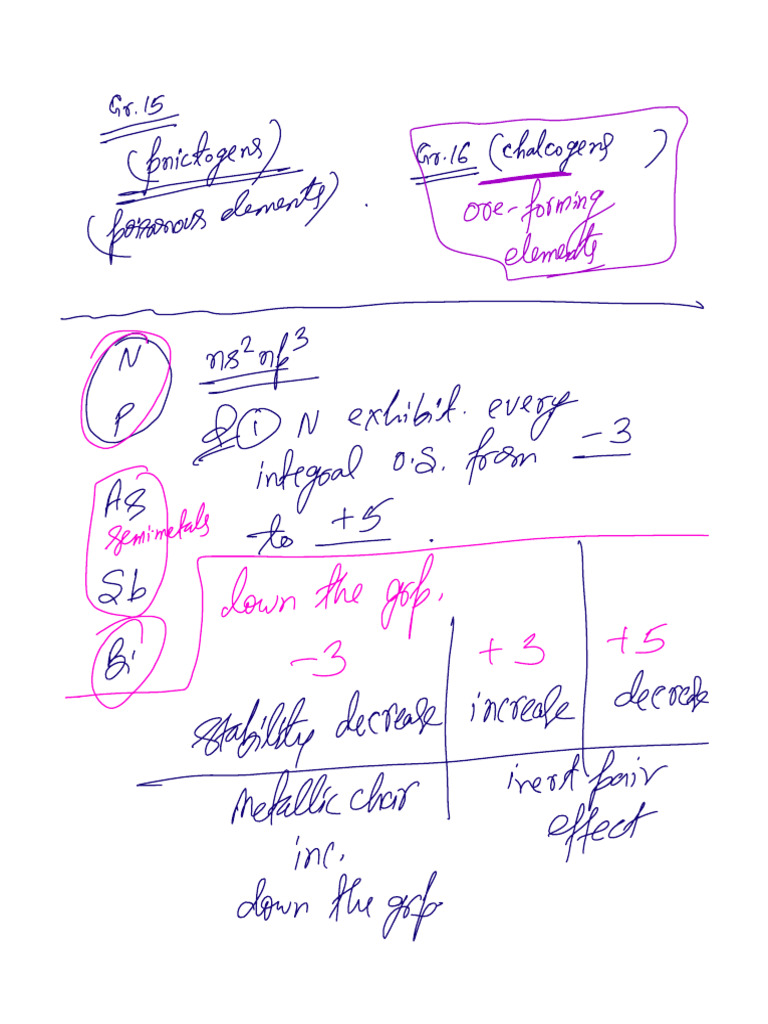 Gr.15
(pnictogens)
(poisonous elements).
Gr.16 (chalcogens)
ore-forming
elements
N
P
As
semimetals
Sb
Bi
ns²np³
(i) N exhibit every
integral o.s. from -3
to +5.
down the grp.
-3
stability decrease
+3
increase
+5
decrease
metallic char
inc.
down the grp.
inert pair
effect